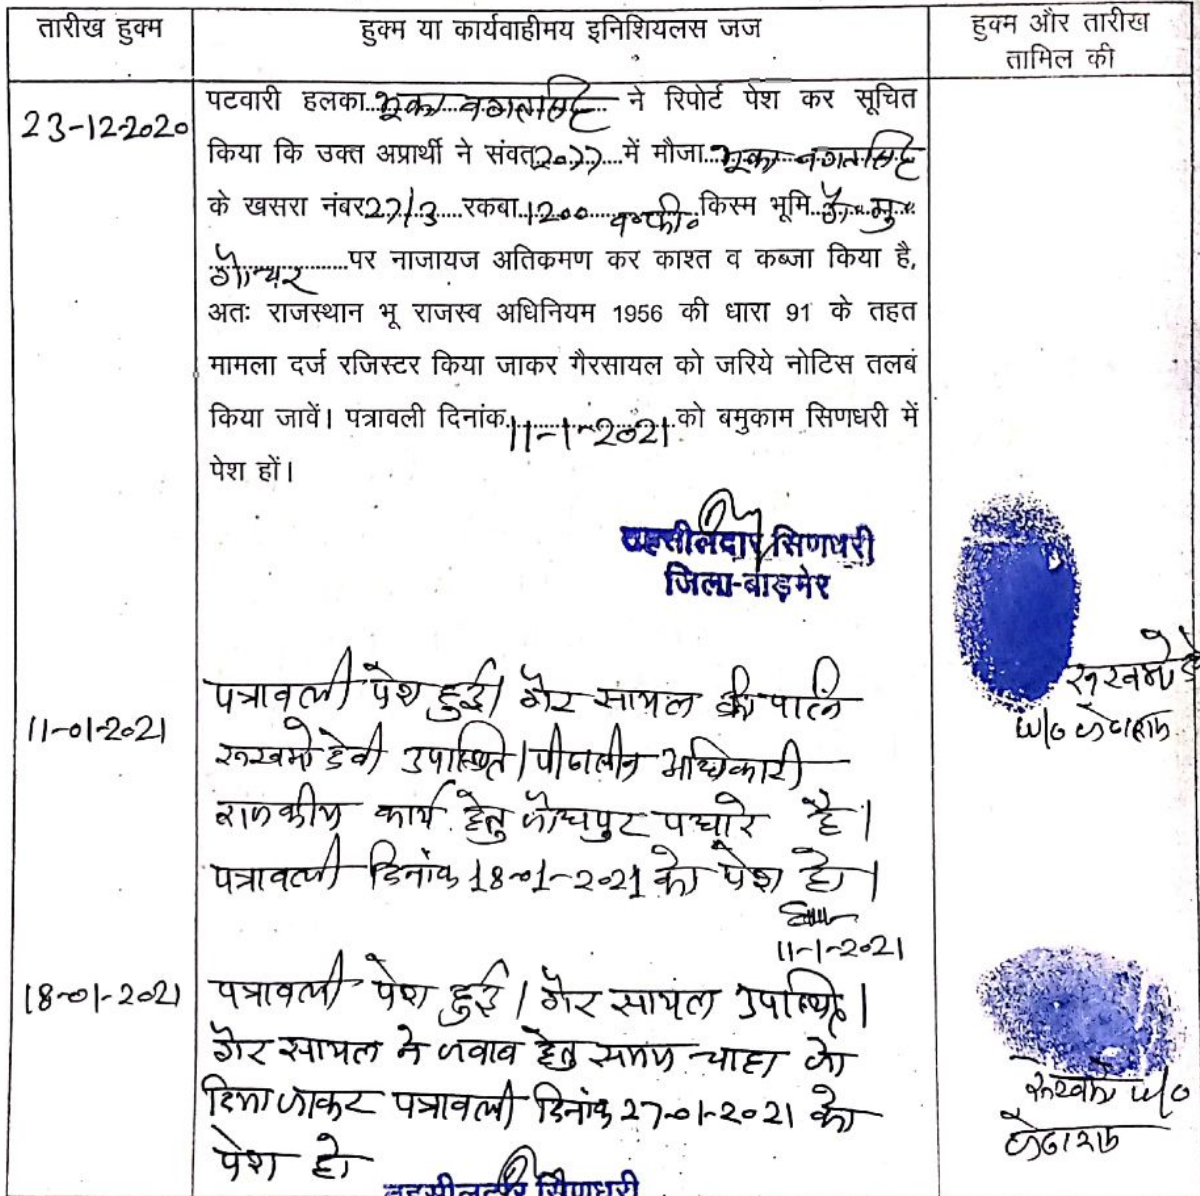 तारीख हुक्म
हुक्म या कार्यवाहीमय इनिशियलस जज
हुक्म और तारीख
तामिल की
23-12-2020
पटवारी हलका भूका भगतसिंह ने रिपोर्ट पेश कर सूचित
किया कि उक्त अप्रार्थी ने संवत् 2077 में मौजा भूका भगतसिंह
के खसरा नंबर 27/3 रकबा 1200 व०फी० किस्म भूमि गै० मु०
गोचर पर नाजायज अतिकमण कर काश्त व कब्जा किया है,
अतः राजस्थान भू राजस्व अधिनियम 1956 की धारा 91 के तहत
मामला दर्ज रजिस्टर किया जाकर गैरसायल को जरिये नोटिस तलबं
किया जावें। पत्रावली दिनांक 11-1-2021 को बमुकाम सिणधरी में
पेश हों।
तहसीलदार सिणधरी
जिला-बाड़मेर
11-01-2021
पत्रावली पेश हुई। गैर सायल की पत्नि
रूखमो देवी उपस्थित। पीठासीन अधिकारी
राजकीय कार्य हेतु जोधपुर पधारे है।
पत्रावली दिनांक 18-01-2021 को पेश हो।
11-1-2021
रूखमो दे
w/o
18-01-2021
पत्रावली पेश हुई। गैर सायल उपस्थित।
गैर सायल ने जवाब हेतु समय चाहा जो
दिया जाकर पत्रावली दिनांक 27-01-2021 को
पेश हो
रूखमो w/o
तहसीलदार सिणधरी